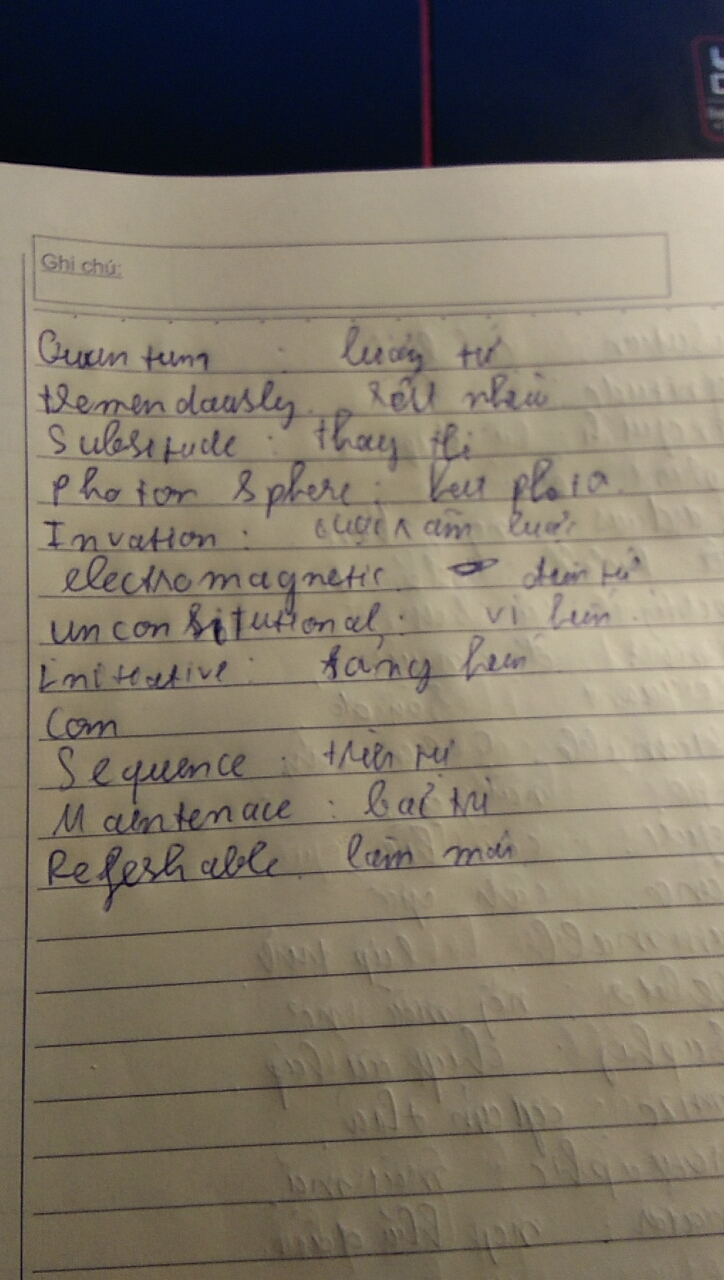 Ghi chú:
Quantum : lượng tử
tremendously rất nhiều
Subsitude : thay thế
photon sphere : cầu photon
Invation : cuộc xâm lược
electromagnetic điện từ
unconsitutional : vi hiến
initiative : sáng kiến
Com
Sequence : trình tự
Maintenace : bảo trì
Refeshable làm mới